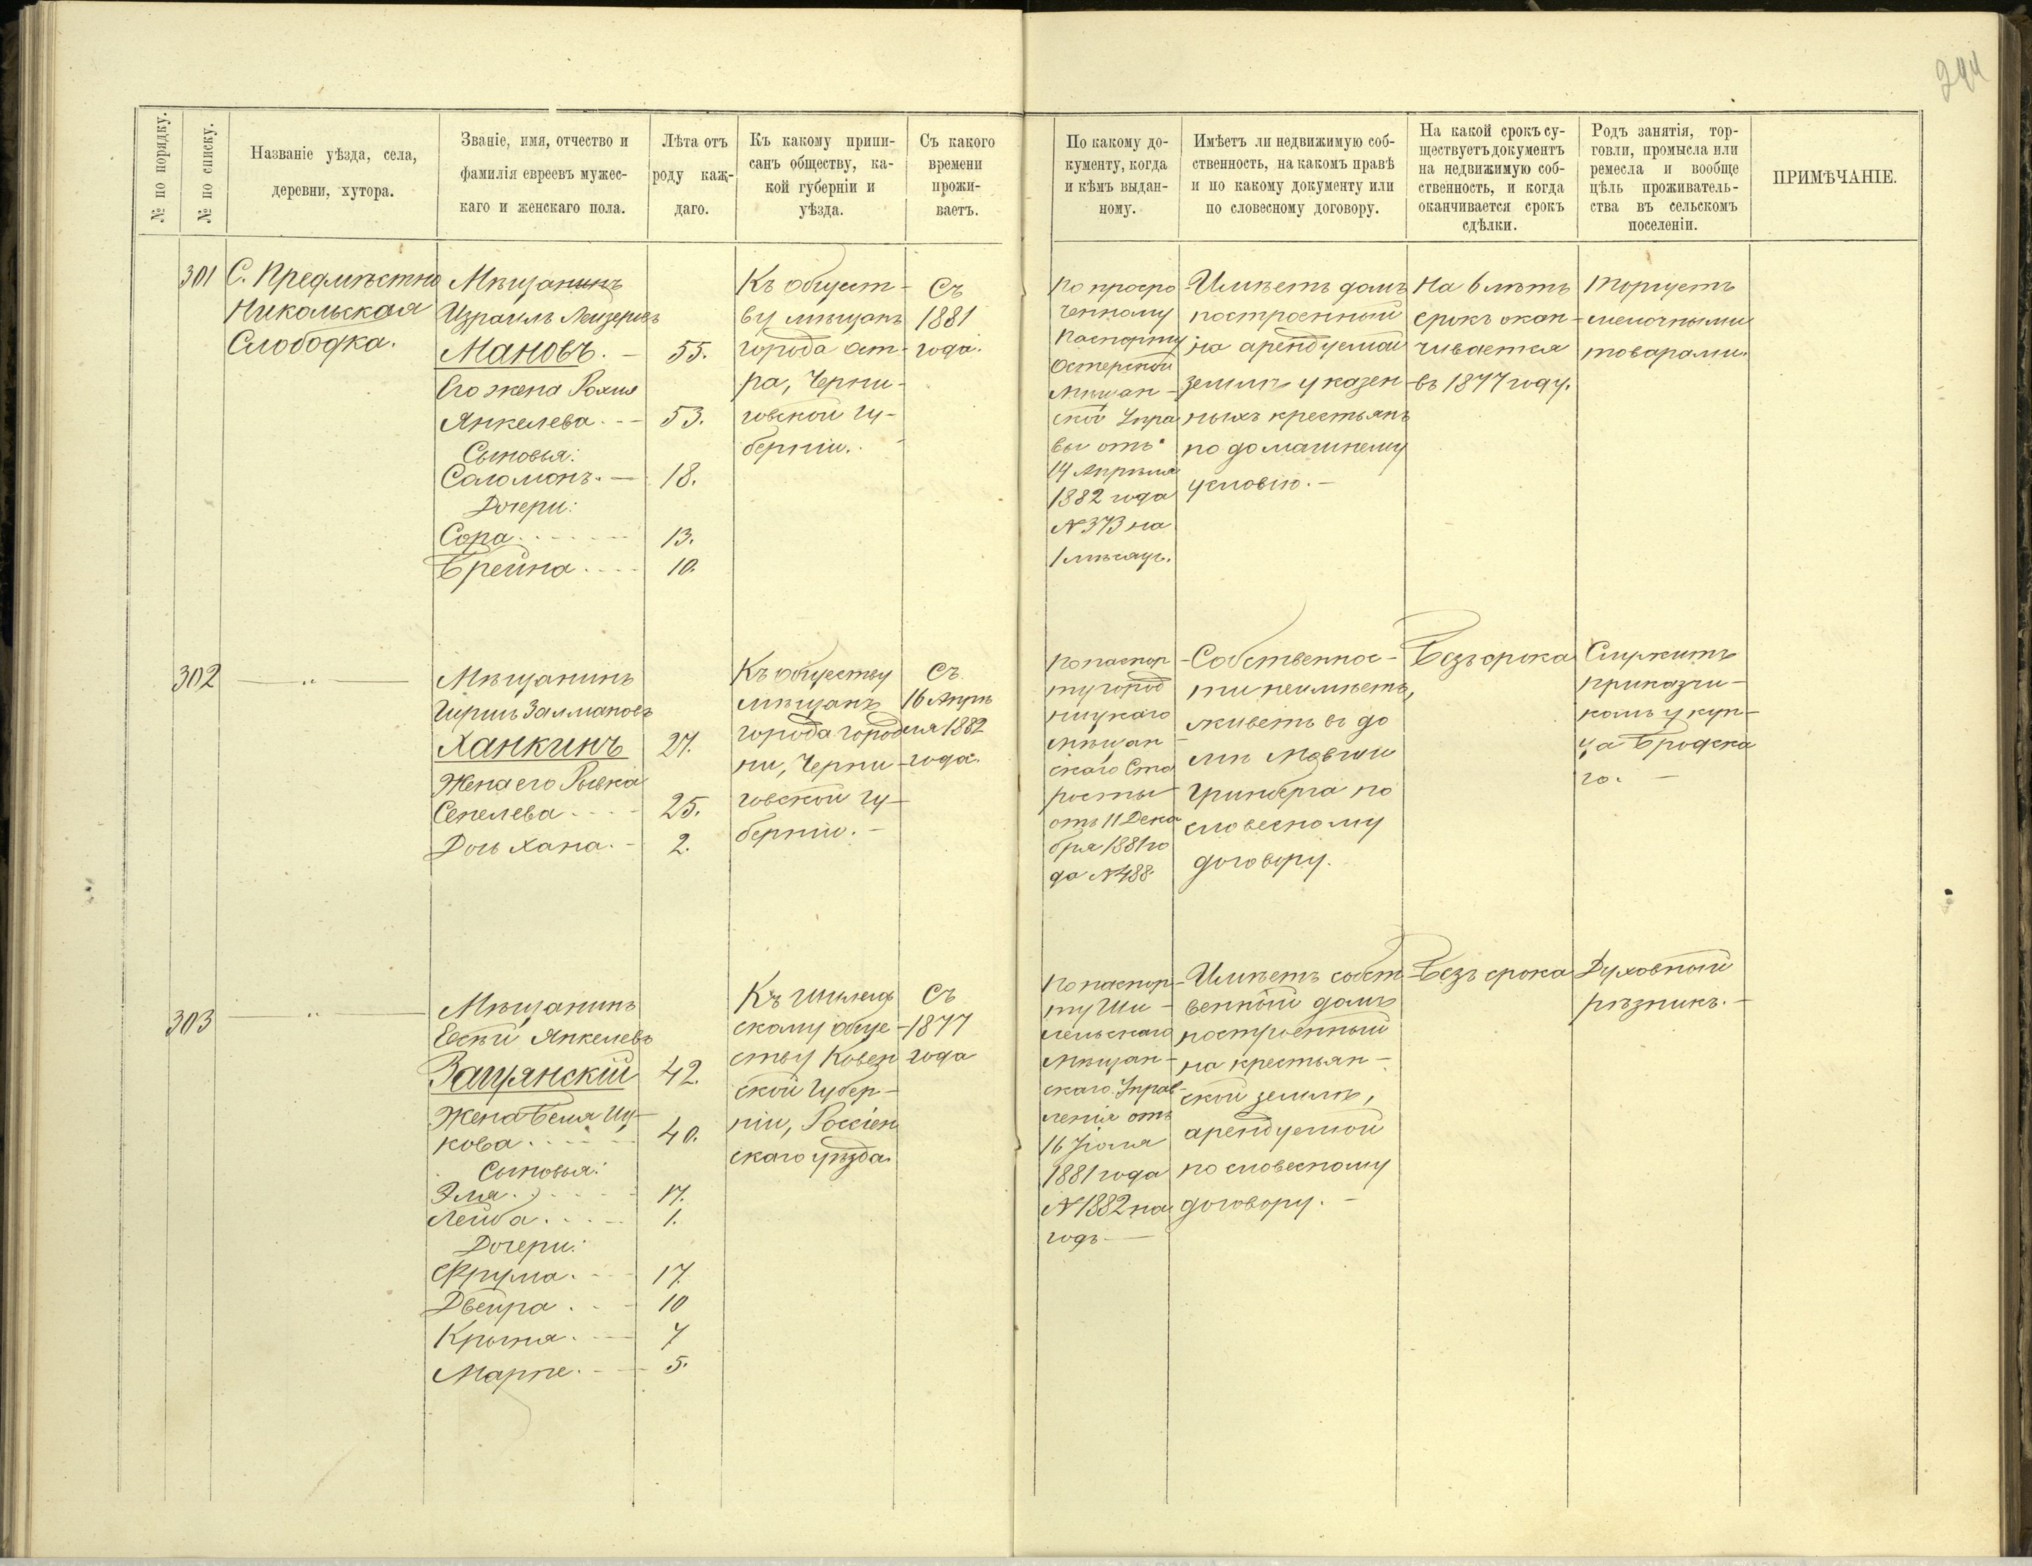 244
№ по порядку.
№ по списку.
Названіе уѣзда, села,
деревни, хутора.
Званіе, имя, отчество и
фамилія евреевъ мужес-
каго и женскаго пола.
Лѣта отъ
роду каж-
даго.
Къ какому припи-
санъ обществу, ка-
кой губерніи и
уѣзда.
Съ какого
времени
прожи-
ваетъ.
По какому до-
кументу, когда
и кѣмъ выдан-
ному.
Имѣетъ ли недвижимую соб-
ственность, на какомъ правѣ
и по какому документу или
по словесному договору.
На какой срокъ су-
ществуетъ документъ
на недвижимую соб-
ственность, и когда
оканчивается срокъ
сдѣлки.
Родъ занятія, тор-
говли, промысла или
ремесла и вообще
цѣль проживатель-
ства въ сельскомъ
поселеніи.
ПРИМѢЧАНІЕ.
301
С. Предмѣстно
Никольская
Слободка.
Мѣщанинъ
Израиль Лейзеровъ
Мановъ. — 55.
Его жена Рохля
Янкелева. - — 53.
Сыновья:
Соломонъ. — 18.
Дочери:
Сора. 13.
Брейна. 10.
Къ общест-
ву мѣщанъ
города Ост-
ра, Черни-
говской гу-
берніи.
Съ
1881
года.
По просро
ченному
паспорту
Остерской
мѣщан-
ской Упра
вы отъ
14 Апрѣля
1882 года
№ 373 на
1 мѣсяцъ.
Имѣетъ домъ
построенный
на арендуемой
землѣ у казен-
ныхъ крестьянъ
по домашнему
условію. —
На 6 лѣтъ
срокъ окан-
чивается
въ 1877 году.
Торгуетъ
мелочными
товарами.
302
— „ —
Мѣщанинъ
Гиршъ Залмановъ
Ханкинъ 27.
Жена его Рывка
25.
Дочь Хана. - 2.
Къ обществу
мѣщанъ
города Город
ни, Черни-
говской гу-
берніи. —
Съ
16 Апрѣ
ля 1882
года.
По паспор
ту город
ницкаго
мѣщан
скаго Ста
росты
отъ 11 Дека
бря 1881 го
да № 488.
Собственнос-
ти неимѣетъ,
живетъ въ до
мѣ Мовши
Гринберга по
словесному
договору.
Безъ срока
Служитъ
приказчи-
комъ у куп-
ца Бродска
го. —
303
— „ —
Мѣщанинъ
Янкелевъ
42.
Жена Бейля Иц-
кова. 40.
Сыновья:
17.
Лейба. 1.
Дочери:
Фрума. 17.
Двейра. 10
Крыня. 7
5.
Къ Шилель
скому обще-
ству Ковен
ской Губер-
ніи, Россіен
скаго уѣзда.
Съ
1877
года
По паспор-
ту Ши-
лельскаго
мѣщан-
скаго Управ-
ленія отъ
16 Іюля
1881 года
№ 1882 на
годъ —
Имѣетъ собст
венный домъ
построенный
на крестьян-
ской землѣ,
арендуемой
по словесному
договору. —
Безъ срока
Духовный
рѣзникъ. —